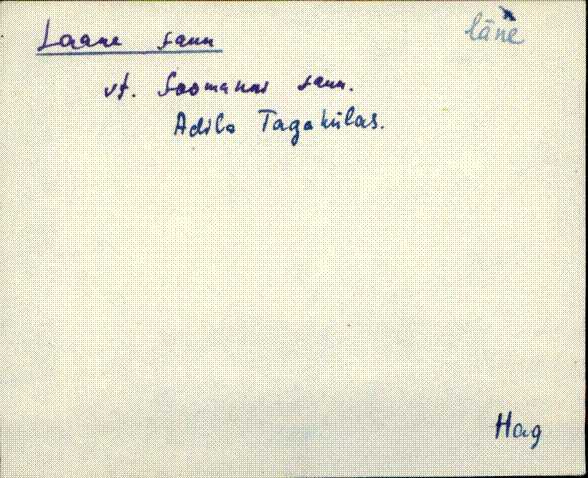 Laane saun
läne
vt. Soomanni saun.
Adila Tagakülas.
Hag